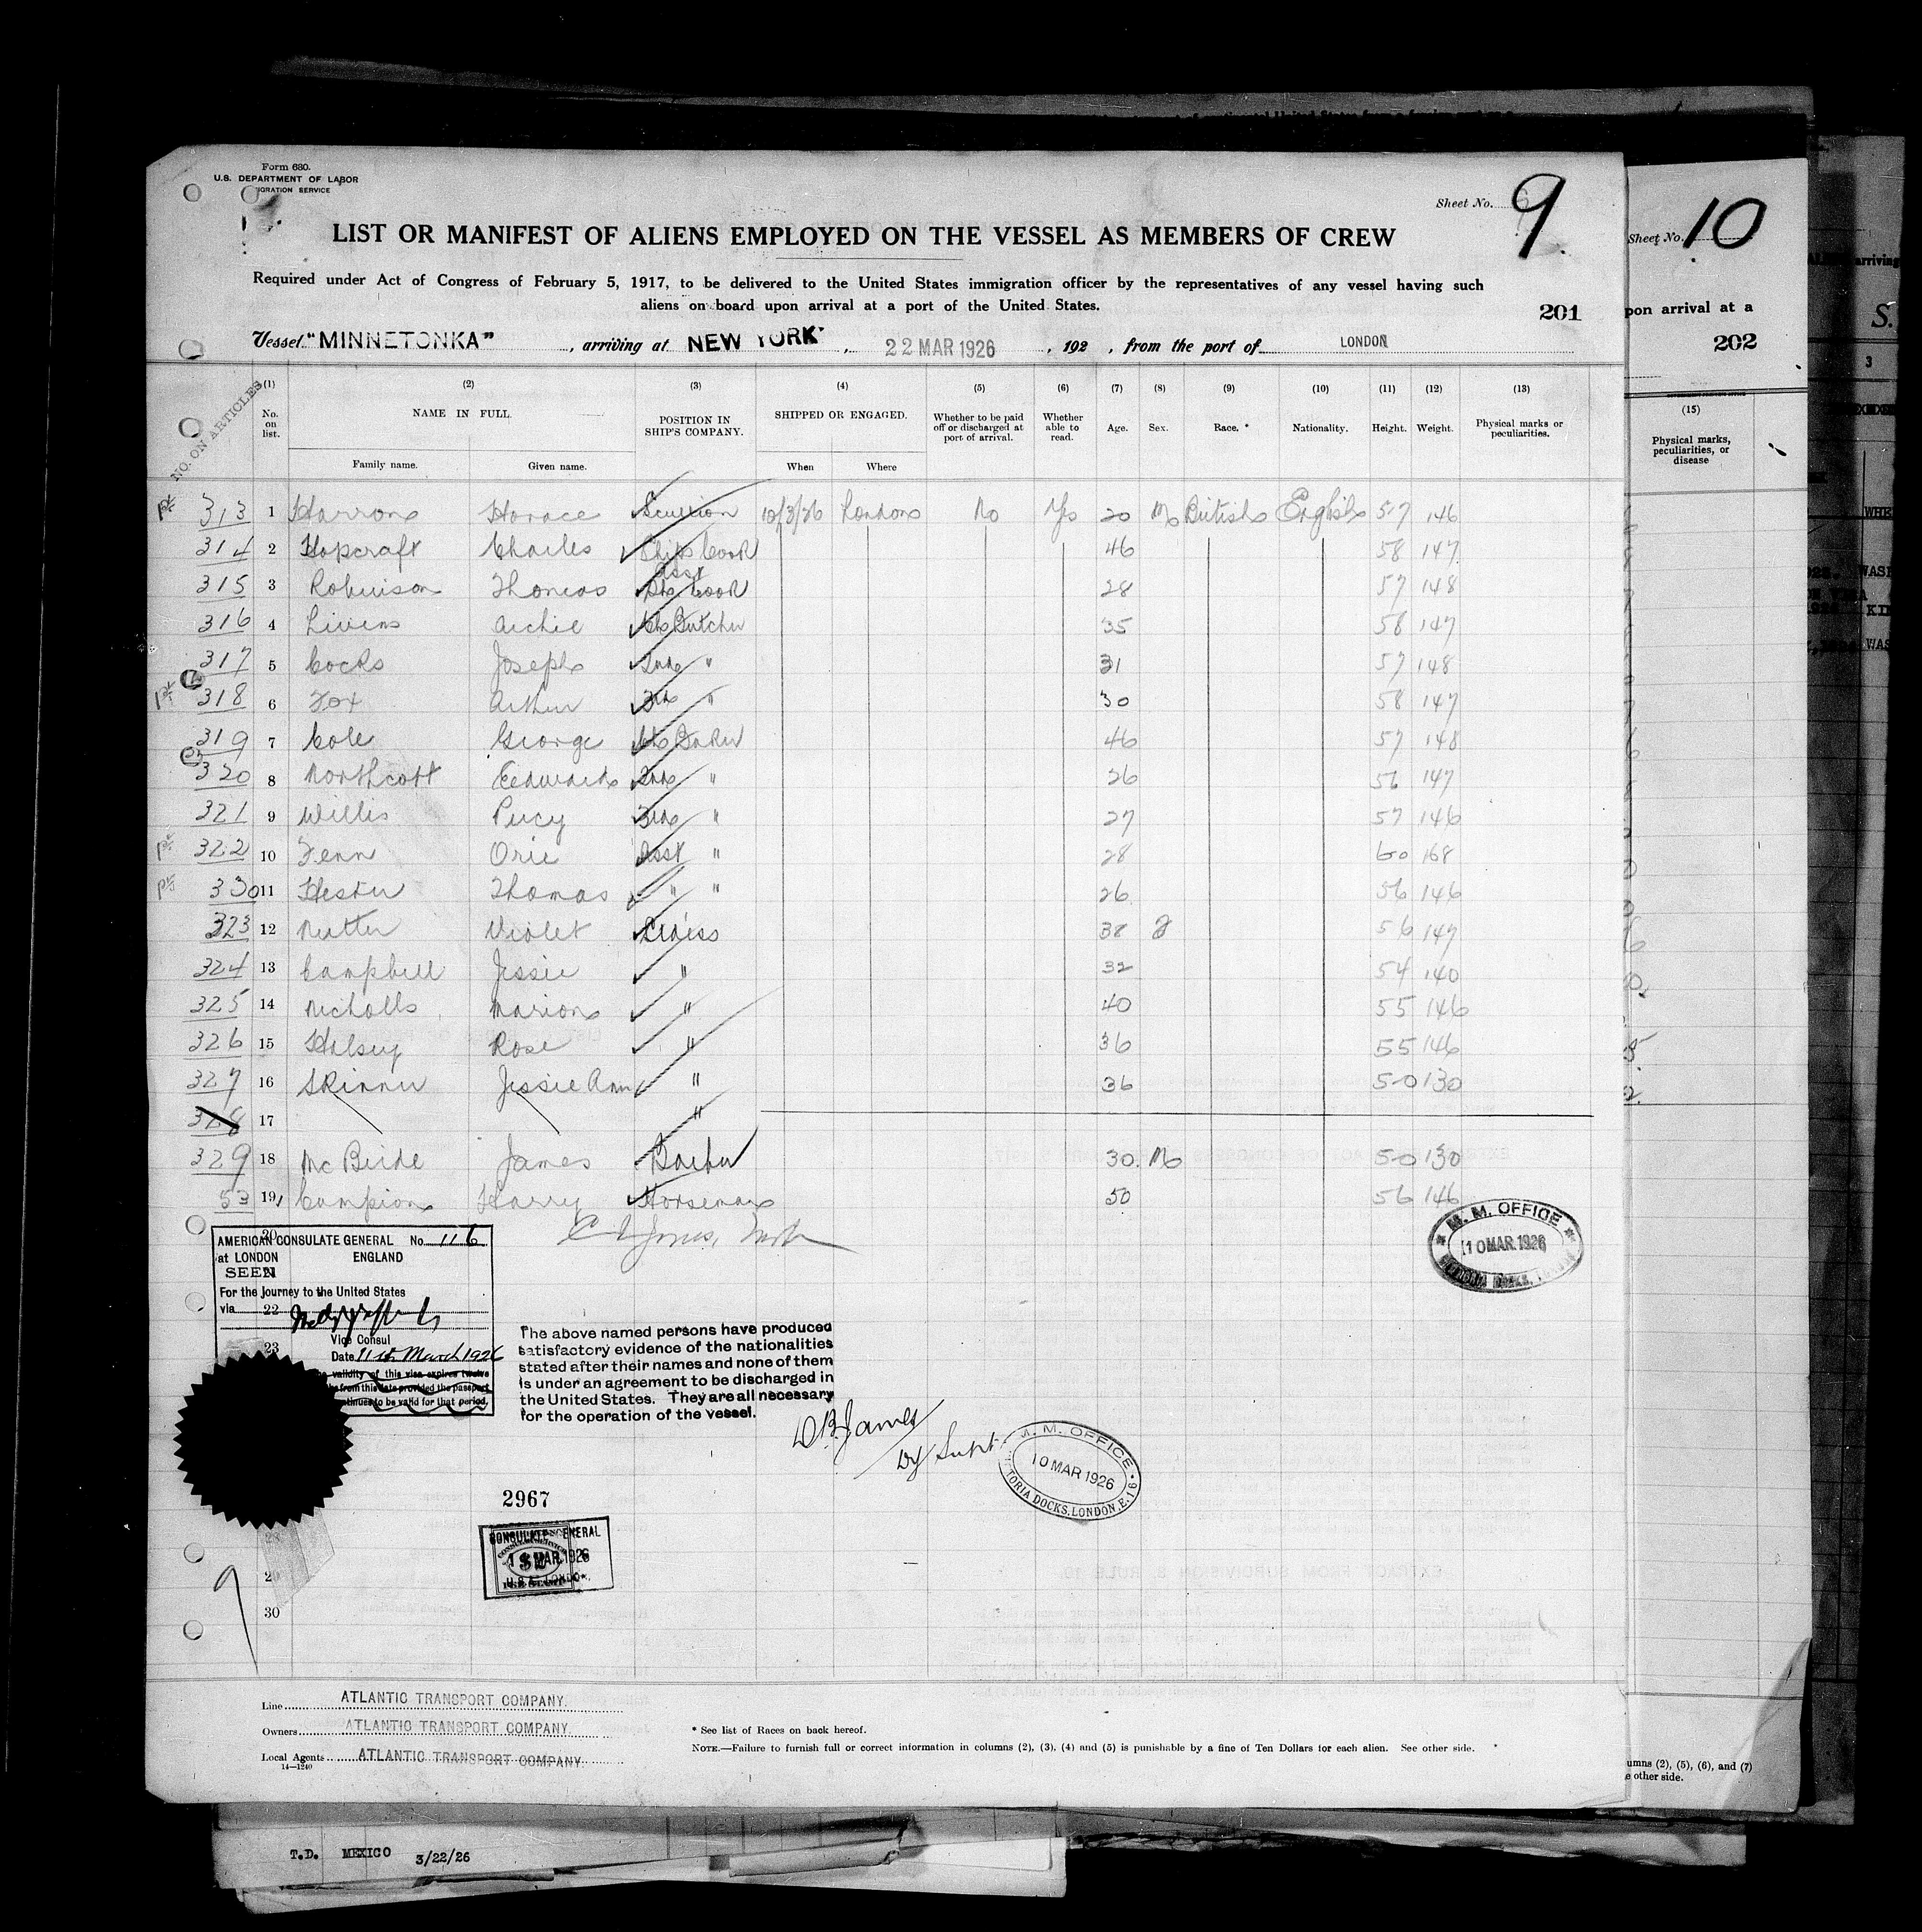 Form 680.
U.S. DEPARTMENT OF LABOR
IGRATION SERVICE
Sheet No. 9.
LIST OR MANIFEST OF ALIENS EMPLOYED ON THE VESSEL AS MEMBERS OF CREW
Required under Act of Congress of February 5, 1917, to be delivered to the United States immigration officer by the representatives of any vessel having such
aliens on board upon arrival at a port of the United States.
201
Vessel "MINNETONKA", arriving at NEW YORK, 22 MAR 1926, 192 , from the port of LONDON
NO. ON ARTICLES
(1) (2) (3) (4) (5) (6) (7) (8) (9) (10) (11) (12) (13)
No. on list. NAME IN FULL. POSITION IN SHIP'S COMPANY. SHIPPED OR ENGAGED. Whether to be paid off or discharged at port of arrival. Whether able to read. Age. Sex. Race. * Nationality. Height. Weight. Physical marks or peculiarities.
Family name. Given name. When Where
313 1 Harron Horace Scullion 10/3/26 London No Yes 20 M British English 57 146
314 2 Hopcraft Charles Ships Cook 46 58 147
315 3 Robinson Thomas Asst Shs Cook 28 57 148
316 4 Livens Archie Butcher 35 58 147
317 5 Cocks Joseph 2nd " 31 57 148
318 6 Fox Arthur 3rd " 30 58 147
319 7 Cole George Baker 46 57 148
320 8 Northcott Eedward 2nd " 26 56 147
321 9 Willis Percy 3rd " 27 57 146
322 10 Fenn Orie Asst " 28 60 168
330 11 Hester Thomas " " 26 56 146
323 12 Nutter Violet 38 F 56 147
324 13 Campbell Jessie " 32 54 140
325 14 Nicholls Marion " 40 55 146
326 15 Halsey Rose " 36 55 146
327 16 Skinner Jessie Ann " 36 50 130
328 17 "
329 18 McBride James Barber 30. M 50 130
53 19 Campion Harry Horseman 50 56 146
M. M. OFFICE
10 MAR 1926
AMERICAN CONSULATE GENERAL No. 116
at LONDON ENGLAND
SEEN
For the Journey to the United States
via
22
Vice Consul
23
Date 11th March 1926
validity of this visa expires twelve
from this date provided the passport
continues to be valid for that period.
The above named persons have produced
satisfactory evidence of the nationalities
stated after their names and none of them
is under an agreement to be discharged in
the United States. They are all necessary
for the operation of the vessel.
D.B. James
Dy Supt
M. M. OFFICE
10 MAR 1926
TORIA DOCKS, LONDON, E.16
2967
CONSULATE GENERAL
MAR 1926
U.S.A. LONDON
9
29
30
Line ATLANTIC TRANSPORT COMPANY.
Owners ATLANTIC TRANSPORT COMPANY
Local Agents ATLANTIC TRANSPORT COMPANY.
14—1240
* See list of Races on back hereof.
NOTE.—Failure to furnish full or correct information in columns (2), (3), (4) and (5) is punishable by a fine of Ten Dollars for each alien. See other side.
Sheet No. 10
pon arrival at a
202
(15)
Physical marks,
peculiarities, or
disease
umns (2), (5), (6), and (7)
e other side.
arriving
S.
3
T.D. MEXICO 3/22/26